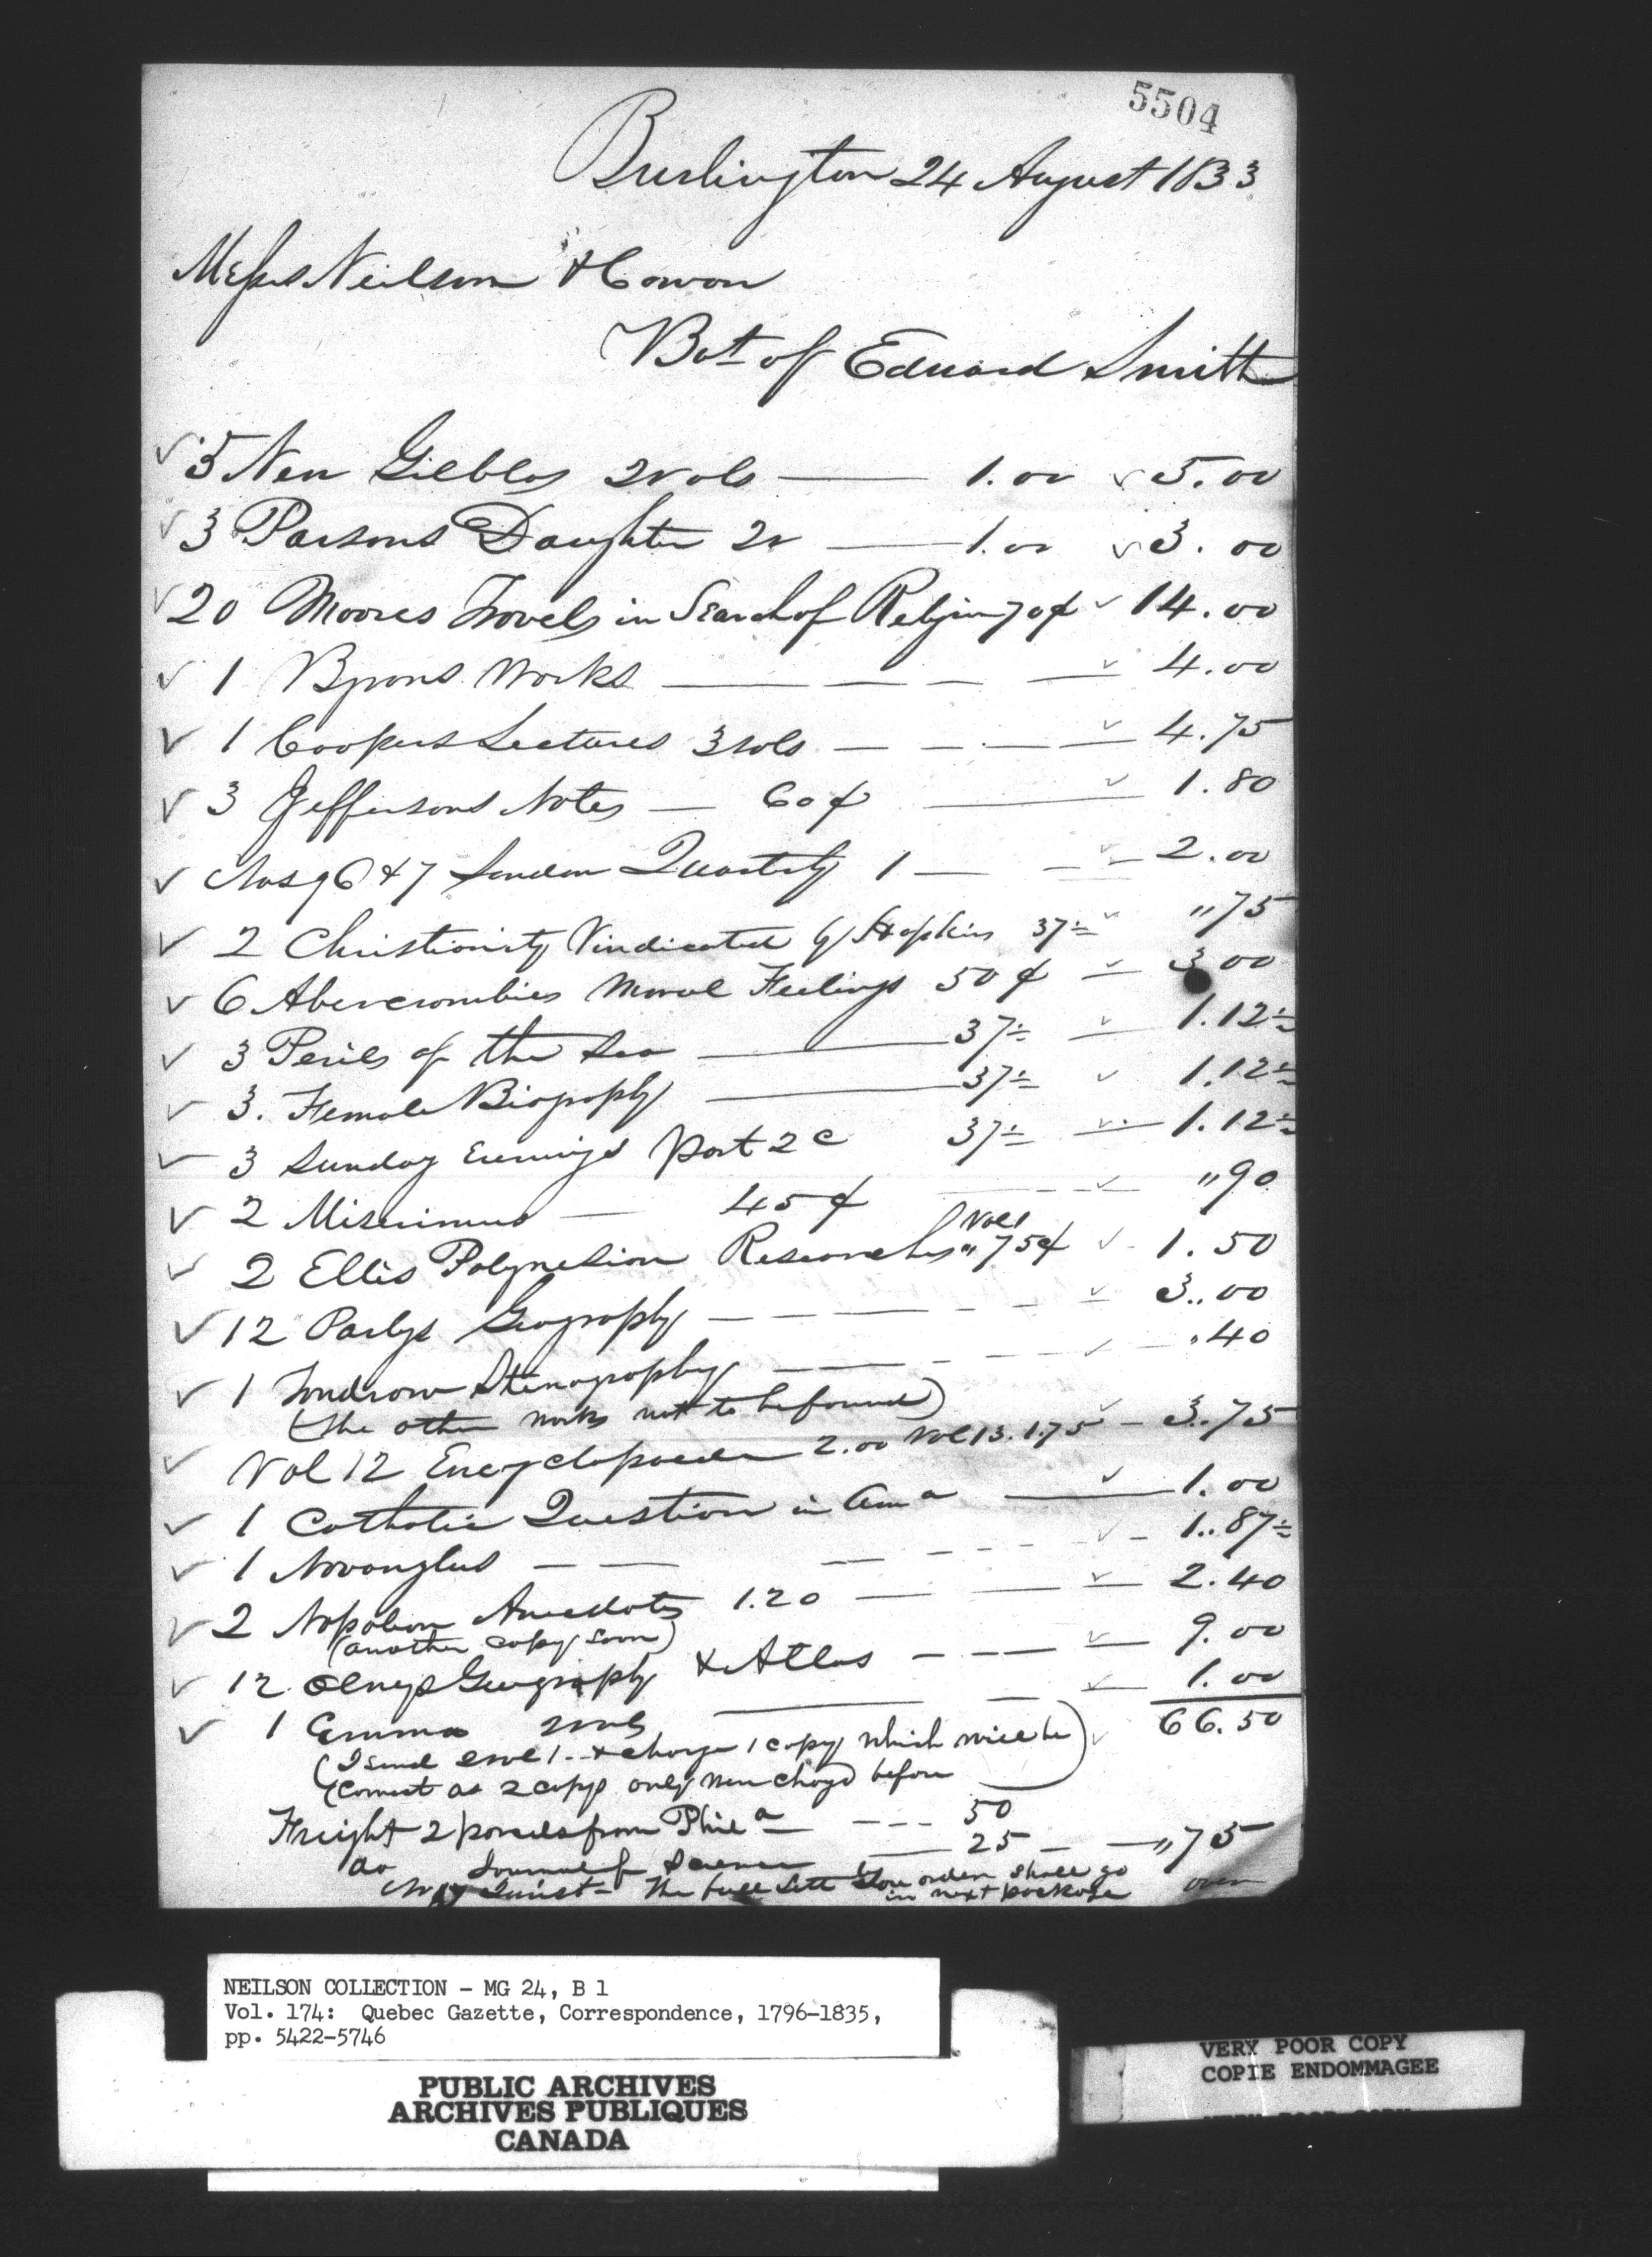 5504
Burlington 24 August 1833
Messrs Neilson & Cowan
Bot of Edward Smith
5 New Gilblas 2 vols 1.00 5.00
3 Parsons Daughter 2v 1.00 3.00
20 Moores Travels in Search of Religion 70¢ 14.00
1 Byrons Works 4.00
1 Coopers Lectures 3 vols 4.75
3 Jeffersons Notes 60¢ 1.80
Nos 96 & 7 London Quarterly 1 2.00
2 Christianity Vindicated by Hopkins 37½ "75
6 Abercrombies Moral Feelings 50¢ 3.00
3 Perils of the Sea 37½ 1.12½
3. Female Biography 37½ 1.12½
3 Sunday Evenings Part 2d 37½ 1.12½
2 Miserrimus 45¢ "90
2 Ellis Polynesian Researches Vol 1 " 75¢ 1.50
12 Parleys Geography 3..00
1 Stenography "40
(the other works not to be found)
Vol 12 Encyclopaedia 2.00 Vol 13. 1.75 3..75
1 Catholic Question in Ama 1.00
1 Novanglus 1..87½
2 Napoleon Anecdotes 1.20 2.40
(another copy soon)
12 Olneys Geography & Atlas 9.00
1 Emma 2 vols 1.00
66.50
(I send 2 vol 1. & charge 1 copy which will be
correct as 2 copys only were chargd before)
Freight 2 parcels from Phila 50
do Journal of Science 25 "75
The full sett you order shall go
in next package
over
NEILSON COLLECTION - MG 24, B 1
Vol. 174: Quebec Gazette, Correspondence, 1796-1835,
pp. 5422-5746
PUBLIC ARCHIVES
ARCHIVES PUBLIQUES
CANADA
VERY POOR COPY
COPIE ENDOMMAGEE
VERY POOR COPY